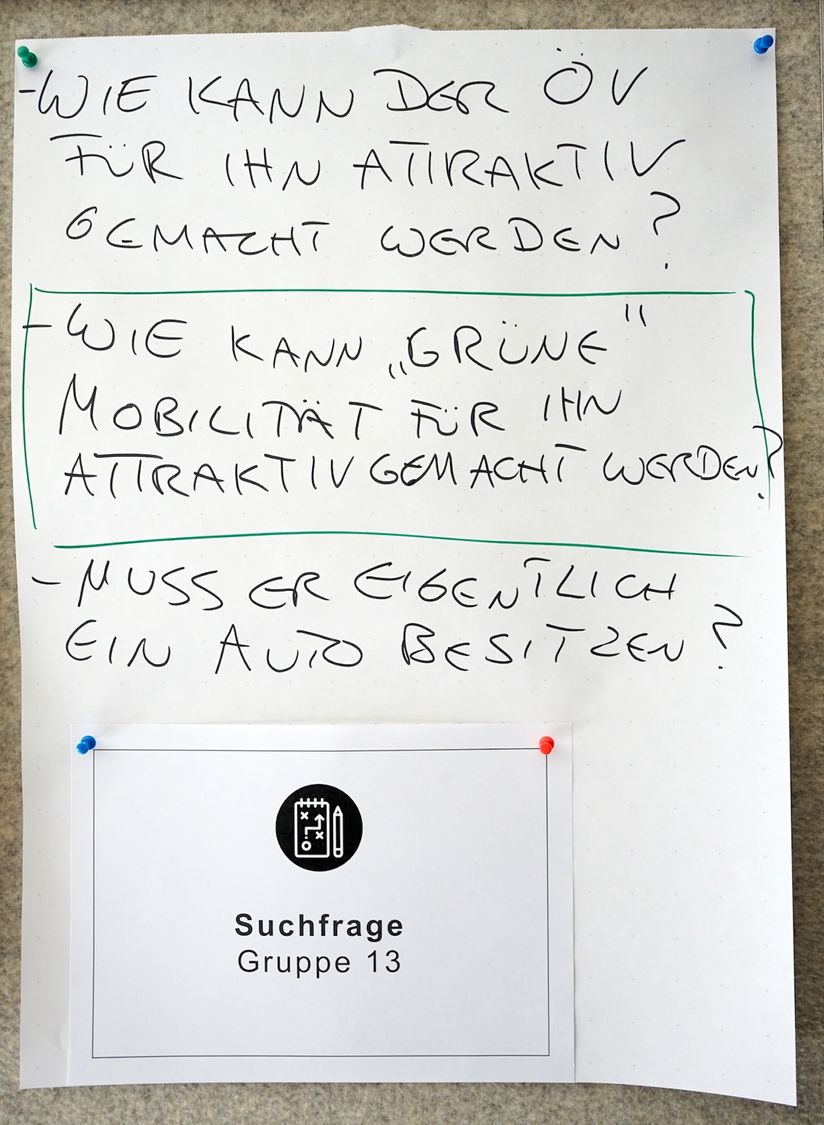 - WIE KANN DER ÖV
FÜR IHN ATTRAKTIV
GEMACHT WERDEN?
- WIE KANN „GRÜNE"
MOBILITÄT FÜR IHN
ATTRAKTIV GEMACHT WERDEN?
- MUSS ER EIGENTLICH
EIN AUTO BESITZEN?
Suchfrage
Gruppe 13